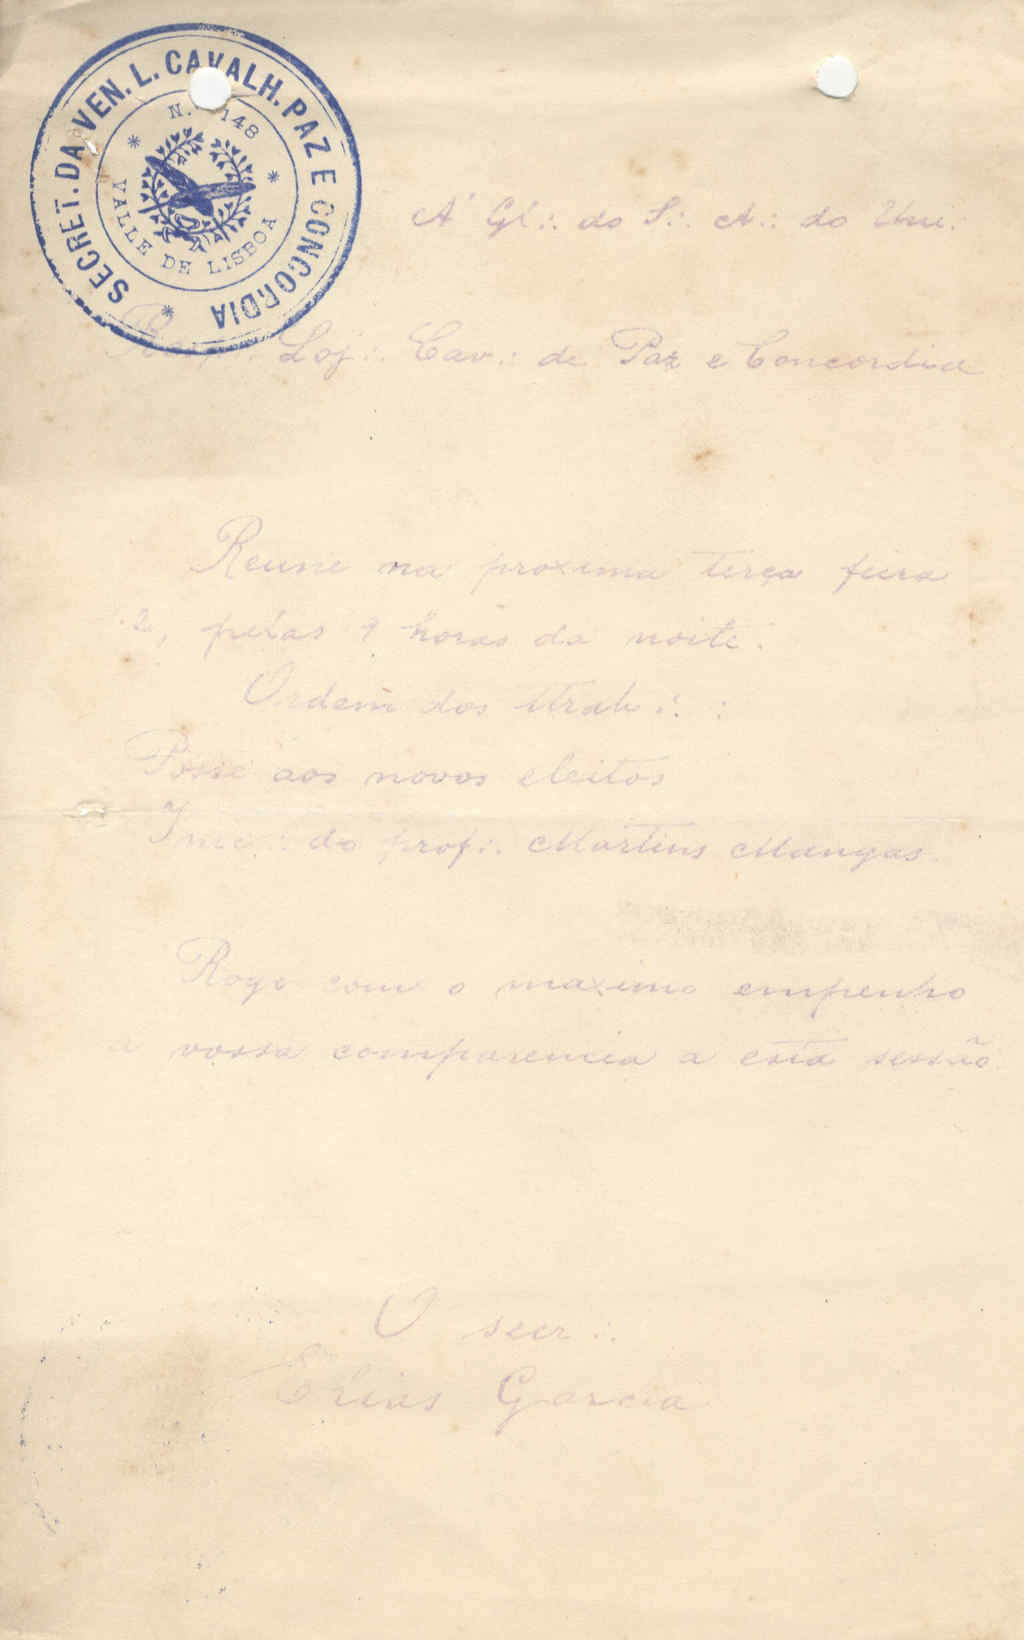 SECRET. DA VEN. L. CAVALH. PAZ E CONCORDIA
N. 148
VALLE DE LISBOA
A' Gl∴ do S∴ A∴ do Uni∴
Loj∴ Cav∴ de Paz e Concordia
Reune na proxima terça feira
2, pelas 9 horas da noite.
Ordem dos trab∴:
Posse aos novos eleitos
do prof∴ Martins Mangas.
Rogo com o maximo empenho
a vossa comparencia a esta sessão.
O secr∴
Elias Garcia